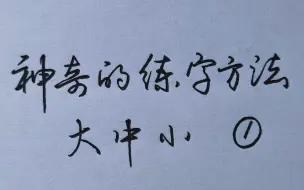 神奇的练字方法
大中小 ①